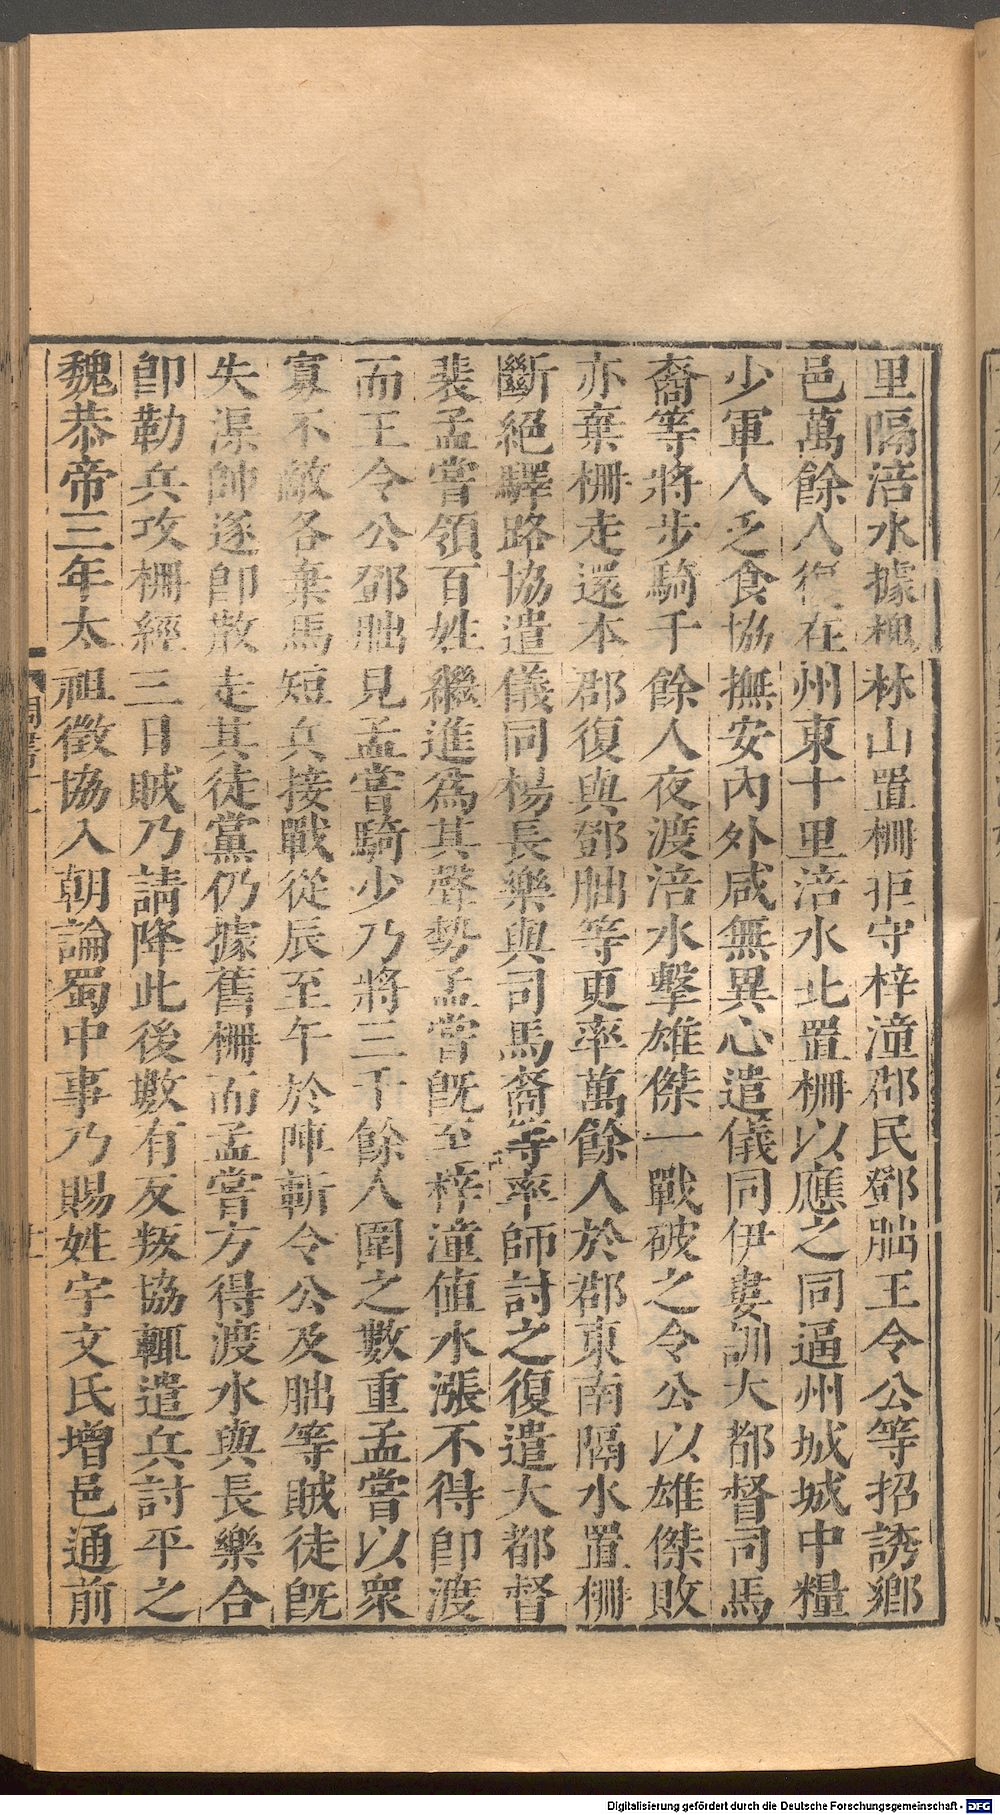 里隔涪水據槐林山置柵拒守梓潼郡民鄧朏王令公等招誘鄉
邑萬餘人復在州東十里涪水北置柵以應之同逼州城城中糧
少軍人乏食協撫安內外咸無異心遣儀同伊婁訓大都督司馬
裔等將步騎千餘人夜渡涪水擊雄傑一戰破之令公以雄傑敗
亦棄柵走還本郡復與鄧朏等更率萬餘人於郡東南隔水置柵
斷絕驛路協遣儀同楊長樂與司馬裔等率師討之復遣大都督
裴孟嘗領百姓繼進為其聲勢孟嘗旣至梓潼值水漲不得卽渡
而王令公鄧朏見孟嘗騎少乃將三千餘人圍之數重孟嘗以衆
寡不敵各棄馬短兵接戰從辰至午於陣斬令公及朏等賊徒旣
失渠帥遂卽散走其徒黨仍據舊柵而孟嘗方得渡水與長樂合
卽勒兵攻柵經三日賊乃請降此後數有反叛協輒遣兵討平之
魏恭帝三年太祖徵協入朝論蜀中事乃賜姓宇文氏增邑通前
Digitalisierung gefördert durch die Deutsche Forschungsgemeinschaft - DFG